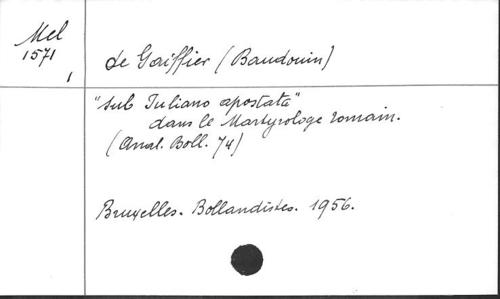 Mel
1571
1
de Gaiffier (Baudouin)
"Sub Iuliano apostata"
dans le Martyrologe romain.
(Anal. Boll. 74)
Bruxelles. Bollandistes. 1956.